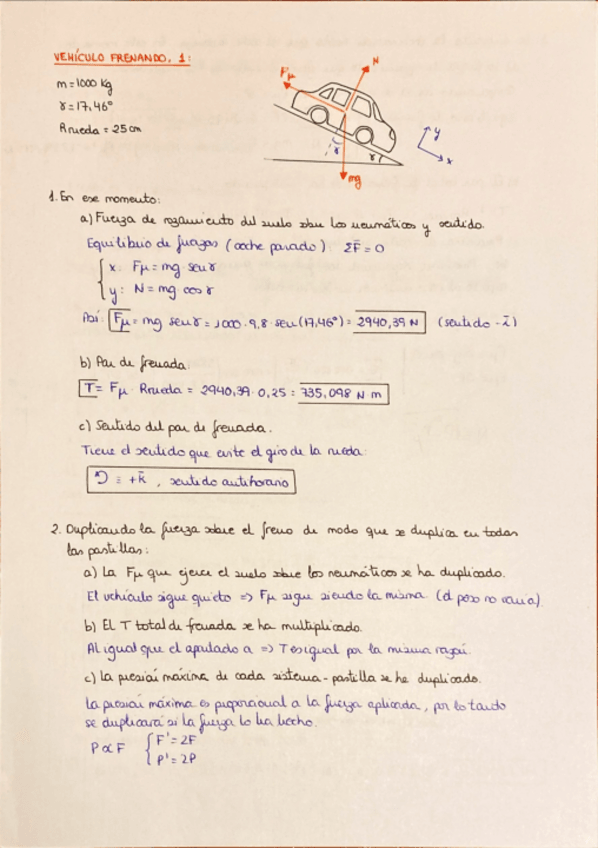 VEHÍCULO FRENANDO, 1:
m = 1000 Kg
γ = 17,46°
Rrueda = 25 cm
N
Fμ
γ
γ
mg
y
x
1. En ese momento:
a) Fuerza de rozamiento del suelo sobre los neumáticos y sentido.
Equilibrio de fuerzas (coche parado): ΣF̄ = 0
x: Fμ = mg · sen γ
y: N = mg cos γ
Así: Fμ = mg sen γ = 1000 · 9,8 · sen (17,46°) = 2940,39 N (sentido -ī)
b) Par de frenada:
T = Fμ · Rrueda = 2940,39 · 0,25 = 735,098 N·m
c) Sentido del par de frenada.
Tiene el sentido que evite el giro de la rueda:
↺ ≡ +k̄ , sentido antihorario
2. Duplicando la fuerza sobre el freno de modo que se duplica en todas
las pastillas:
a) La Fμ que ejerce el suelo sobre los neumáticos se ha duplicado.
El vehículo sigue quieto => Fμ sigue siendo la misma (el peso no varía).
b) El T total de frenada se ha multiplicado.
Al igual que el apartado a => T es igual por la misma razón.
c) La presión máxima de cada sistema-pastilla se he duplicado.
La presión máxima es proporcional a la fuerza aplicada, por lo tanto
se duplicará si la fuerza lo ha hecho.
P ∝ F
F' = 2F
P' = 2P